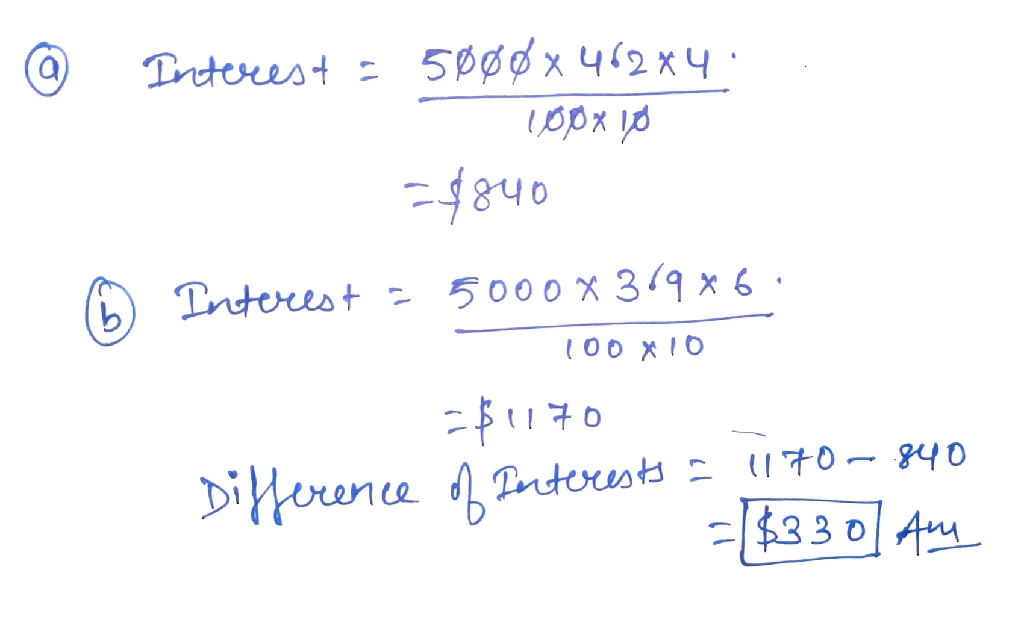 (a) Interest = 5000 x 4.2 x 4
100 x 10
= $840
(b) Interest = 5000 x 3.9 x 6
100 x 10
= $1170
Difference of Interests = 1170 - 840
= $330 Ans